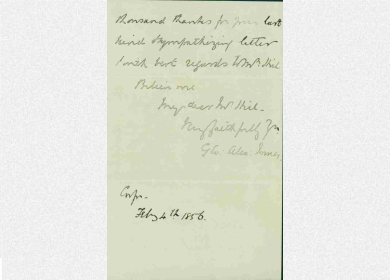 thousand thanks for your last
kind & sympathizing letter
with best regards to Mrs
Believe me
My dear Mr
Very faithfully Yrs
Geo. Alex.
Feby 4th 1856.